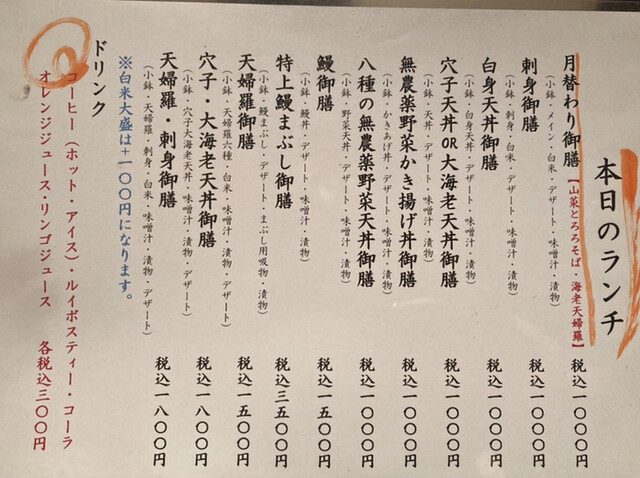 本日のランチ
月替わり御膳【山菜とろろそば・海老天婦羅】 税込一〇〇〇円
(小鉢・メイン・白米・デザート・味噌汁・漬物)
刺身御膳 税込一〇〇〇円
(小鉢・刺身・白米・デザート・味噌汁・漬物)
白身天丼御膳 税込一〇〇〇円
(小鉢・白身天丼・デザート・味噌汁・漬物)
穴子天丼OR大海老天丼御膳 税込一〇〇〇円
(小鉢・天丼・デザート・味噌汁・漬物)
無農薬野菜かき揚げ丼御膳 税込一〇〇〇円
(小鉢・かきあげ丼・デザート・味噌汁・漬物)
八種の無農薬野菜天丼御膳 税込一〇〇〇円
(小鉢・野菜天丼・デザート・味噌汁・漬物)
鰻御膳 税込一五〇〇円
(小鉢・鰻丼・デザート・味噌汁・漬物)
特上鰻まぶし御膳 税込三五〇〇円
(小鉢・鰻まぶし・デザート・まぶし用吸物・漬物)
天婦羅御膳 税込一五〇〇円
(小鉢・天婦羅六種・白米・味噌汁・漬物・デザート)
穴子・大海老天丼御膳 税込一八〇〇円
(小鉢・穴子大海老天丼・味噌汁・漬物・デザート)
天婦羅・刺身御膳 税込一八〇〇円
(小鉢・天婦羅・刺身・白米・味噌汁・漬物・デザート)
※白米大盛は+一〇〇円になります。
ドリンク
コーヒー(ホット・アイス)・ルイボスティー・コーラ
オレンジジュース・リンゴジュース 各税込三〇〇円